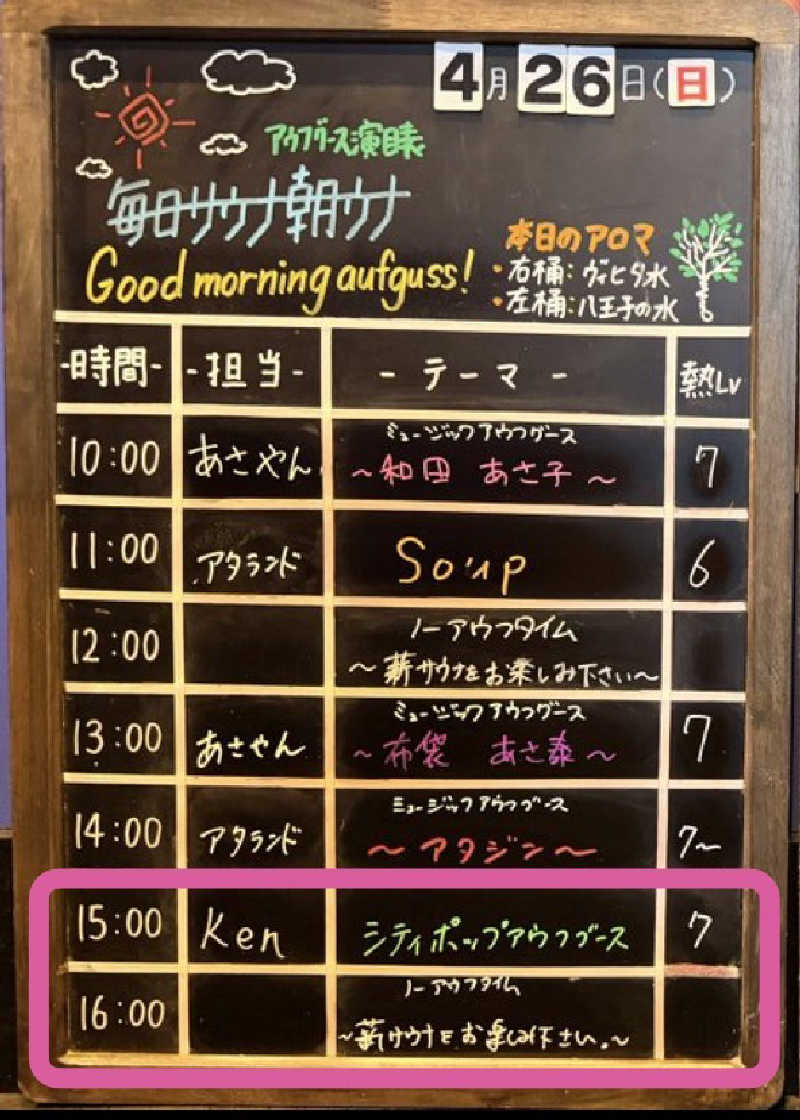 4月26日(日)
アウフグース演目表
毎日サウナ朝ウナ
Good morning aufguss!
本日のアロマ
・右桶:ヴィヒタ水
・左桶:八王子の水
-時間- -担当- -テーマ- 熱Lv
ミュージックアウフグース
10:00 あさやん ～和田 あさ子～ 7
11:00 アタランド Soup 6
ノーアウフタイム
12:00 ～薪サウナをお楽しみ下さい～
ミュージックアウフグース
13:00 あさやん ～布袋 あさ泰～ 7
ミュージックアウフグース
14:00 アタランド ～アタジン～ 7～
15:00 Ken シティポップアウフグース 7
ノーアウフタイム
16:00 ～薪サウナをお楽しみ下さい。～